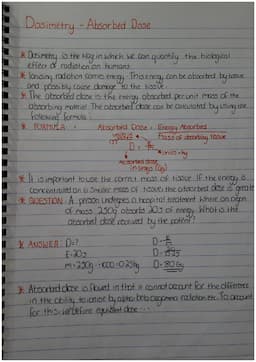 Dosimetry - Absorbed Dose
* Dosimetry is the way in which we can quantify the biological
effect of radiation on humans
* Ionising radiation carries energy. This energy can be absorbed by tissue
and possibly cause damage to the tissue.
* The absorbed dose is the energy absorbed per unit mass of the
absorbing material. The absorbed dose can be calculated by using the
following formula:
* FORMULA: Absorbed Dose = Energy Absorbed
Mass of absorbing tissue
D = E
m
units = kg
Absorbed dose
in Grays (Gy)
* It is important to use the correct mass of tissue. If the energy is
concentrated on a smaller mass of tissue, the absorbed dose is greate
* QUESTION: A person undergoes a hospital treatment where an organ
of mass 250g absorbs 20J of energy. What is the
absorbed dose received by the patient?
* ANSWER: D=? D = E
m
E=20J D = 20
0.25
m=250g ÷1000=0.25kg D=80Gy
* Absorbed dose is flawed in that it cannot account for the difference
in the ability to ionise by alpha, beta, gamma radiation etc. To account
for this, we define equivalent dose...